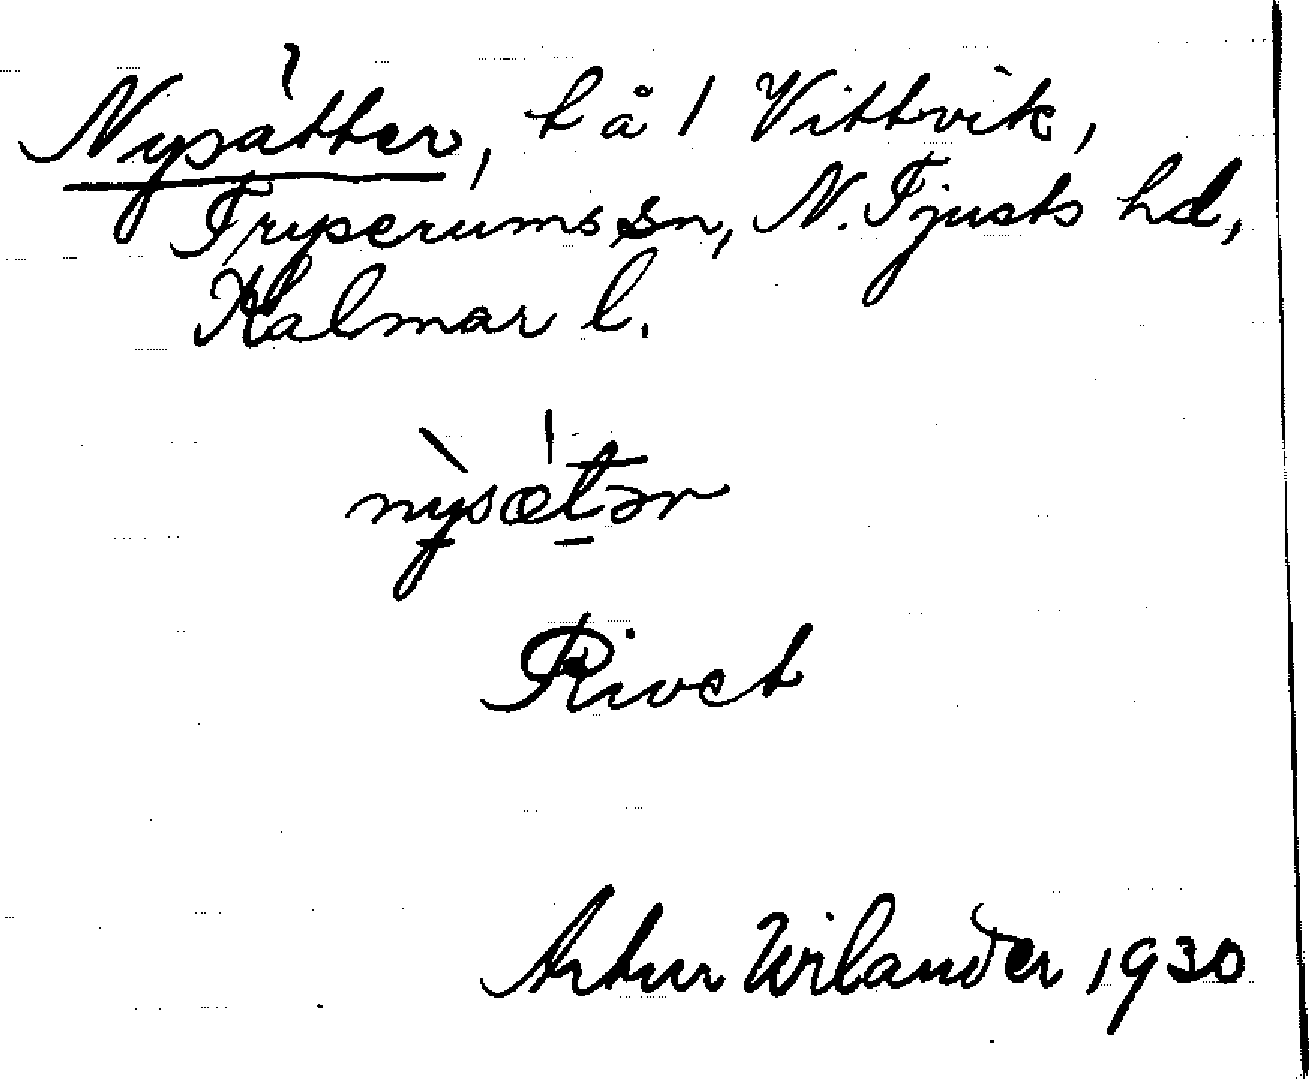 Nysätter, t å 1 Vittvik,
Tryserums sn, N. Tjusts hd,
Kalmar l.
nỳsǽtər
Rivet
Artur Wilander 1930